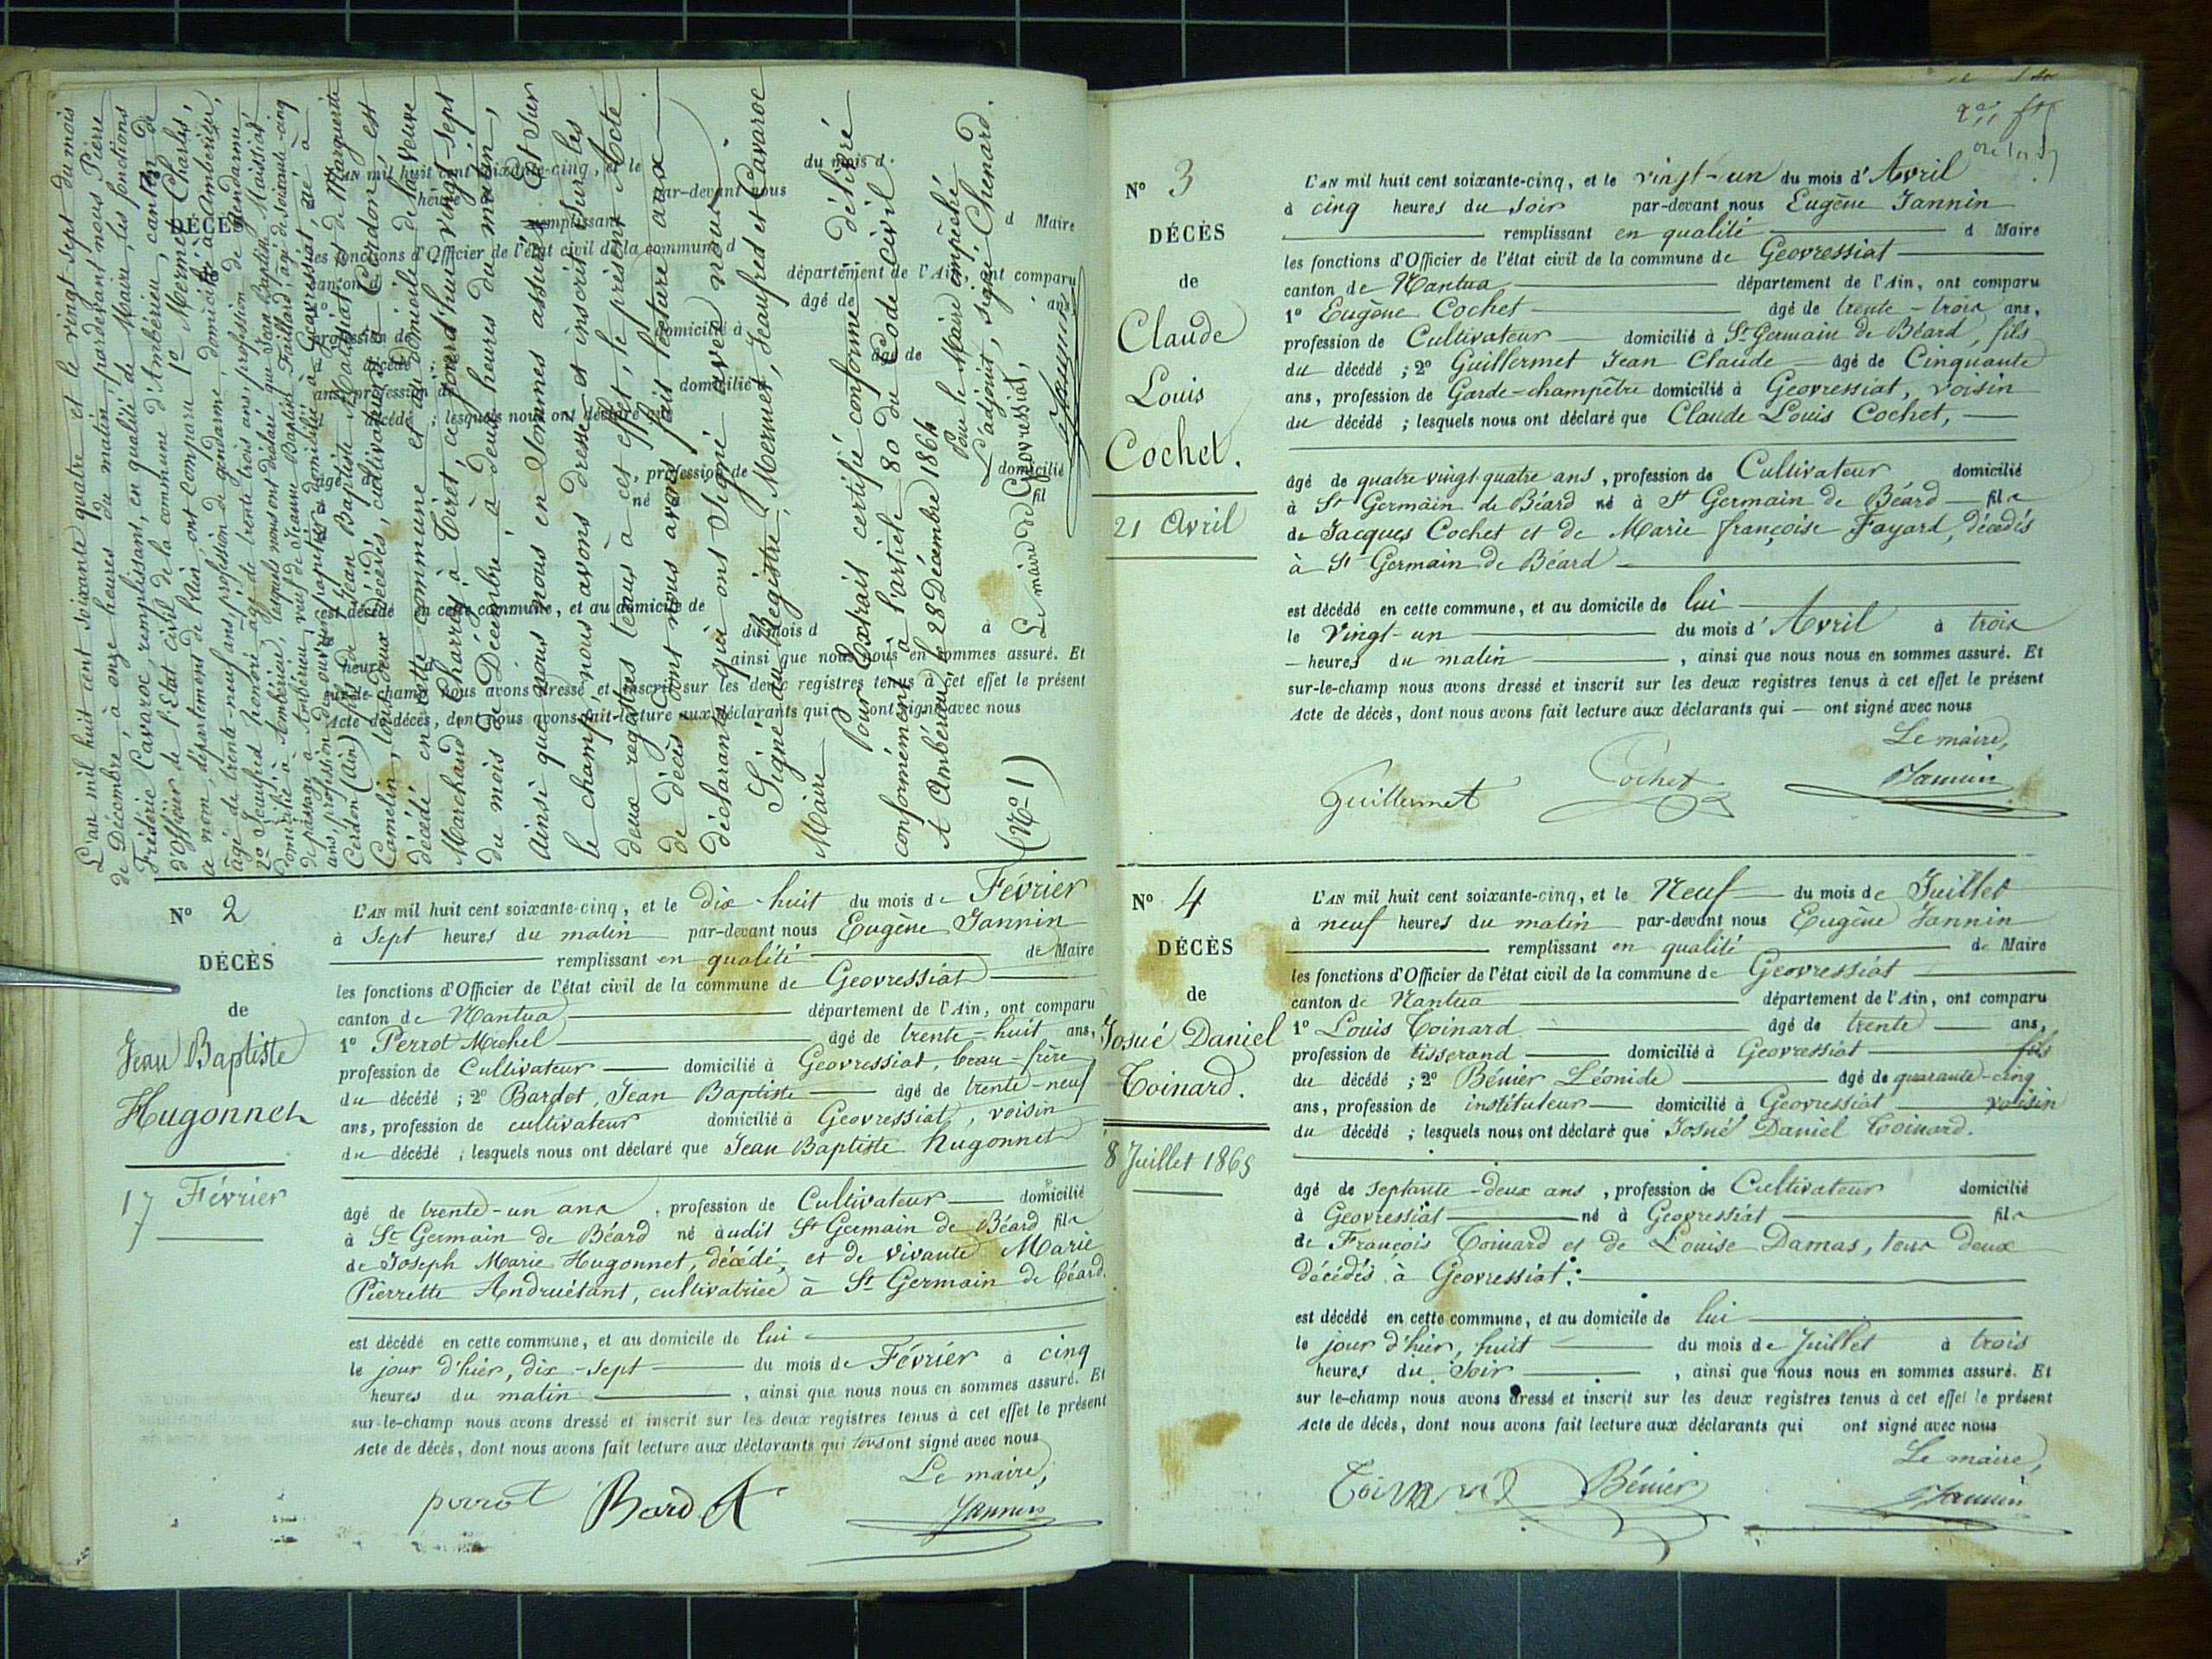 L'an mil huit cent soixante quatre et le vingt sept du mois
de Décembre, à onze heures du matin, pardevant nous Pierre
Frédéric Cavaroc, remplissant, en qualité de Maire, les fonctions
d'officier de l'Etat civil de la commune d'Ambérieu, canton de
ce nom, département de l'Ain, ont comparu 1° Mermet Charles,
âgé de trente-neuf ans, profession de gendarme, domicilié à Ambérieu,
2° Jeaufred honoré âgé de trente trois ans, profession de gendarme
domicilié à Ambérieu, lesquels nous ont déclaré que Jean Baptiste Maissiat
de passage à Ambérieu, veuf de Jeanne Baptiste Taillard, âgé de soixante-cinq
ans, profession de domicilié à Geovressiat, né à
Cerdon (Ain) fils de Jean Baptiste Maissiat et de Marguerite
Camelin, tous deux décédés, cultivateurs à Cerdon, est
décédé en cette commune et au domicile de la veuve
Marchand Charles, à Tiret, ce jourd'hui vingt-sept
du mois de Décembre à deux heures du matin,
Ainsi que nous nous en sommes assurés. Et sur
le champ nous avons dressé et inscrit sur les
deux registres tenus à cet effet, le présent Acte
de décès dont nous avons fait lecture aux
déclarants qui ont signé avec nous.
Signé au Registre: Mermet, Jeaufred et Cavaroc
Maire
Pour Extrait certifié conforme délivré
conformément à l'article 80 du Code civil
A Ambérieu, le 28 Décembre 1864
Pour le Maire empêché
L'adjoint, signé: Chenard.
(N° 1) Le maire de Geovressiat,
Jannin
DÉCÈS
L'AN mil huit cent soixante-cinq, et le du mois d
heure par-devant nous
remplissant d Maire
les fonctions d'Officier de l'état civil de la commune d
canton d département de l'Ain, ont comparu
1° âgé de ans
profession de domicilié à
décédé âgé de
ans, profession de domicilié à
d décédé ; lesquels nous ont déclaré que
âgé d , profession de domicilié
né à fil
est décédé en cette commune, et au domicile de
du mois d à
heure ainsi que nous nous en sommes assuré. Et
sur-le-champ nous avons dressé et inscrit sur les deux registres tenus à cet effet le présent
Acte de décès, dont nous avons fait lecture aux déclarants qui ont signé avec nous
N° 2
DÉCÈS
de
Jean Baptiste
Hugonnet
17 Février
L'AN mil huit cent soixante-cinq, et le dix-huit du mois de Février
à sept heures du matin par-devant nous Eugène Jannin
remplissant en qualité de Maire
les fonctions d'Officier de l'état civil de la commune de Geovressiat
canton de Nantua département de l'Ain, ont comparu
1° Perrot Michel âgé de trente-huit ans,
profession de Cultivateur domicilié à Geovressiat, beau-frère
du décédé ; 2° Bardet, Jean Baptiste âgé de trente-neuf
ans, profession de cultivateur domicilié à Geovressiat, voisin
du décédé ; lesquels nous ont déclaré que Jean Baptiste Hugonnet
âgé de trente-un ans, profession de Cultivateur domicilié
à St Germain de Béard né audit St Germain de Béard fils
de Joseph Marie Hugonnet, décédé, et de vivante Marie
Pierrette Andruétant, cultivatrice à St Germain de Béard.
est décédé en cette commune, et au domicile de lui
le jour d'hier, dix-sept du mois de Février à cinq
heures du matin, ainsi que nous nous en sommes assuré. Et
sur-le-champ nous avons dressé et inscrit sur les deux registres tenus à cet effet le présent
Acte de décès, dont nous avons fait lecture aux déclarants qui tous ont signé avec nous
Le maire,
perrot Bardet Jannin
N° 3
DÉCÈS
de
Claude
Louis
Cochet.
21 Avril
L'AN mil huit cent soixante-cinq, et le vingt-un du mois d'Avril
à cinq heures du soir par-devant nous Eugène Jannin
remplissant en qualité d Maire
les fonctions d'Officier de l'état civil de la commune de Geovressiat
canton de Nantua département de l'Ain, ont comparu
1° Eugène Cochet âgé de trente-trois ans,
profession de Cultivateur domicilié à St Germain de Béard, fils
du décédé ; 2° Guillermet Jean Claude âgé de Cinquante
ans, profession de Garde-champêtre domicilié à Geovressiat, voisin
du décédé ; lesquels nous ont déclaré que Claude Louis Cochet,
âgé de quatre vingt quatre ans, profession de Cultivateur domicilié
à St Germain de Béard né à St Germain de Béard fils
de Jacques Cochet et de Marie françoise Fayard, décédés
à St Germain de Béard
est décédé en cette commune, et au domicile de lui
le Vingt-un du mois d'Avril à trois
heures du matin, ainsi que nous nous en sommes assuré. Et
sur-le-champ nous avons dressé et inscrit sur les deux registres tenus à cet effet le présent
Acte de décès, dont nous avons fait lecture aux déclarants qui ont signé avec nous
Le maire,
Guillermet Cochet Jannin
N° 4
DÉCÈS
de
Josué Daniel
Toinard.
8 Juillet 1865
L'AN mil huit cent soixante-cinq, et le Neuf du mois de Juillet
à neuf heures du matin par-devant nous Eugène Jannin
remplissant en qualité de Maire
les fonctions d'Officier de l'état civil de la commune de Geovressiat
canton de Nantua département de l'Ain, ont comparu
1° Louis Toinard âgé de trente ans,
profession de tisserand domicilié à Geovressiat fils
du décédé ; 2° Bénier Léonide âgé de quarante-cinq
ans, profession de instituteur domicilié à Geovressiat voisin
du décédé ; lesquels nous ont déclaré que Josué Daniel Toinard.
âgé de septante-deux ans, profession de Cultivateur domicilié
à Geovressiat né à Geovressiat fils
de François Toinard et de Louise Damas, tous deux
décédés à Geovressiat.
est décédé en cette commune, et au domicile de lui
le jour d'hier, huit du mois de Juillet à trois
heures du Soir, ainsi que nous nous en sommes assuré. Et
sur le-champ nous avons dressé et inscrit sur les deux registres tenus à cet effet le présent
Acte de décès, dont nous avons fait lecture aux déclarants qui ont signé avec nous
Le maire,
Toinard Bénier Jannin